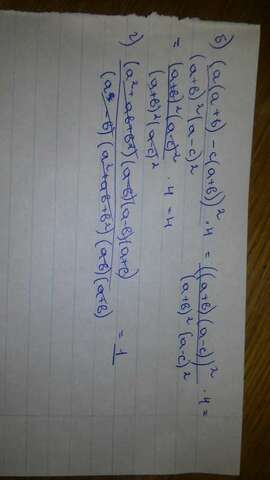 б) (a(a+b) - c(a+b))² / (a+b)²(a-c)² · 4 = ((a+b)(a-c))² / (a+b)²(a-c)² · 4 =
= (a+b)²(a-c)² / (a+b)²(a-c)² · 4 = 4
г) (a²+ab+b²)(a-b)(a-b)(a+b) / (a-b)(a²+ab+b²)(a-b)(a+b) = 1